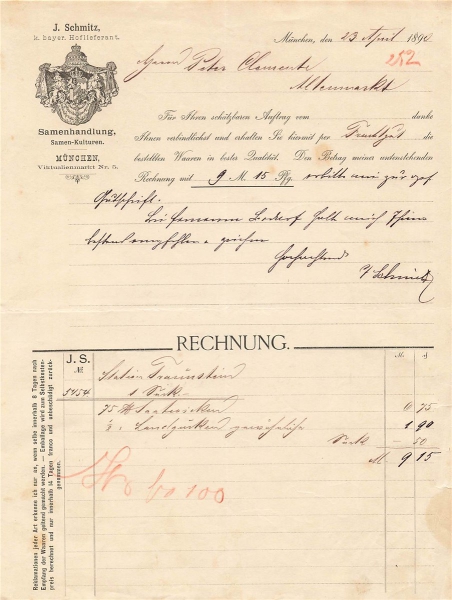 J. Schmitz,
k. bayer. Hoflieferant.
Samenhandlung,
Samen-Kulturen.
MÜNCHEN,
Viktualienmarkt Nr. 5.
München, den 23 April 1890
252
Herrn Peter Clemente
Altenmarkt
Für Ihren schätzbaren Auftrag vom danke
Ihnen verbindlichst und erhalten Sie hiermit per Frachtgut die
bestellten Waaren in bester Qualität. Den Betrag meiner untenstehenden
Rechnung mit 9 M. 15 Pfg. erbitte mir zur gef
Gutschrift.
Bei fernerem Bedarf halte mich Ihnen
bestens empfohlen & zeichne
Hochachtend
J Schmitz
RECHNUNG.
J. S.
№
M.
₰
Station Traunstein
5454 1 Sack
75 Saatwicken 6 75
Landgurken gewöhnliche 1 90
Sack - 50
M. 9 15
100
Reklamationen jeder Art erkenne ich nur an, wenn selbe innerhalb 8 Tagen nach
Empfang der Waaren geltend gemacht werden. — Emballage wird zum Selbstkosten-
preis berechnet und nur innerhalb 14 Tagen franco und unbeschädigt zurück-
genommen.